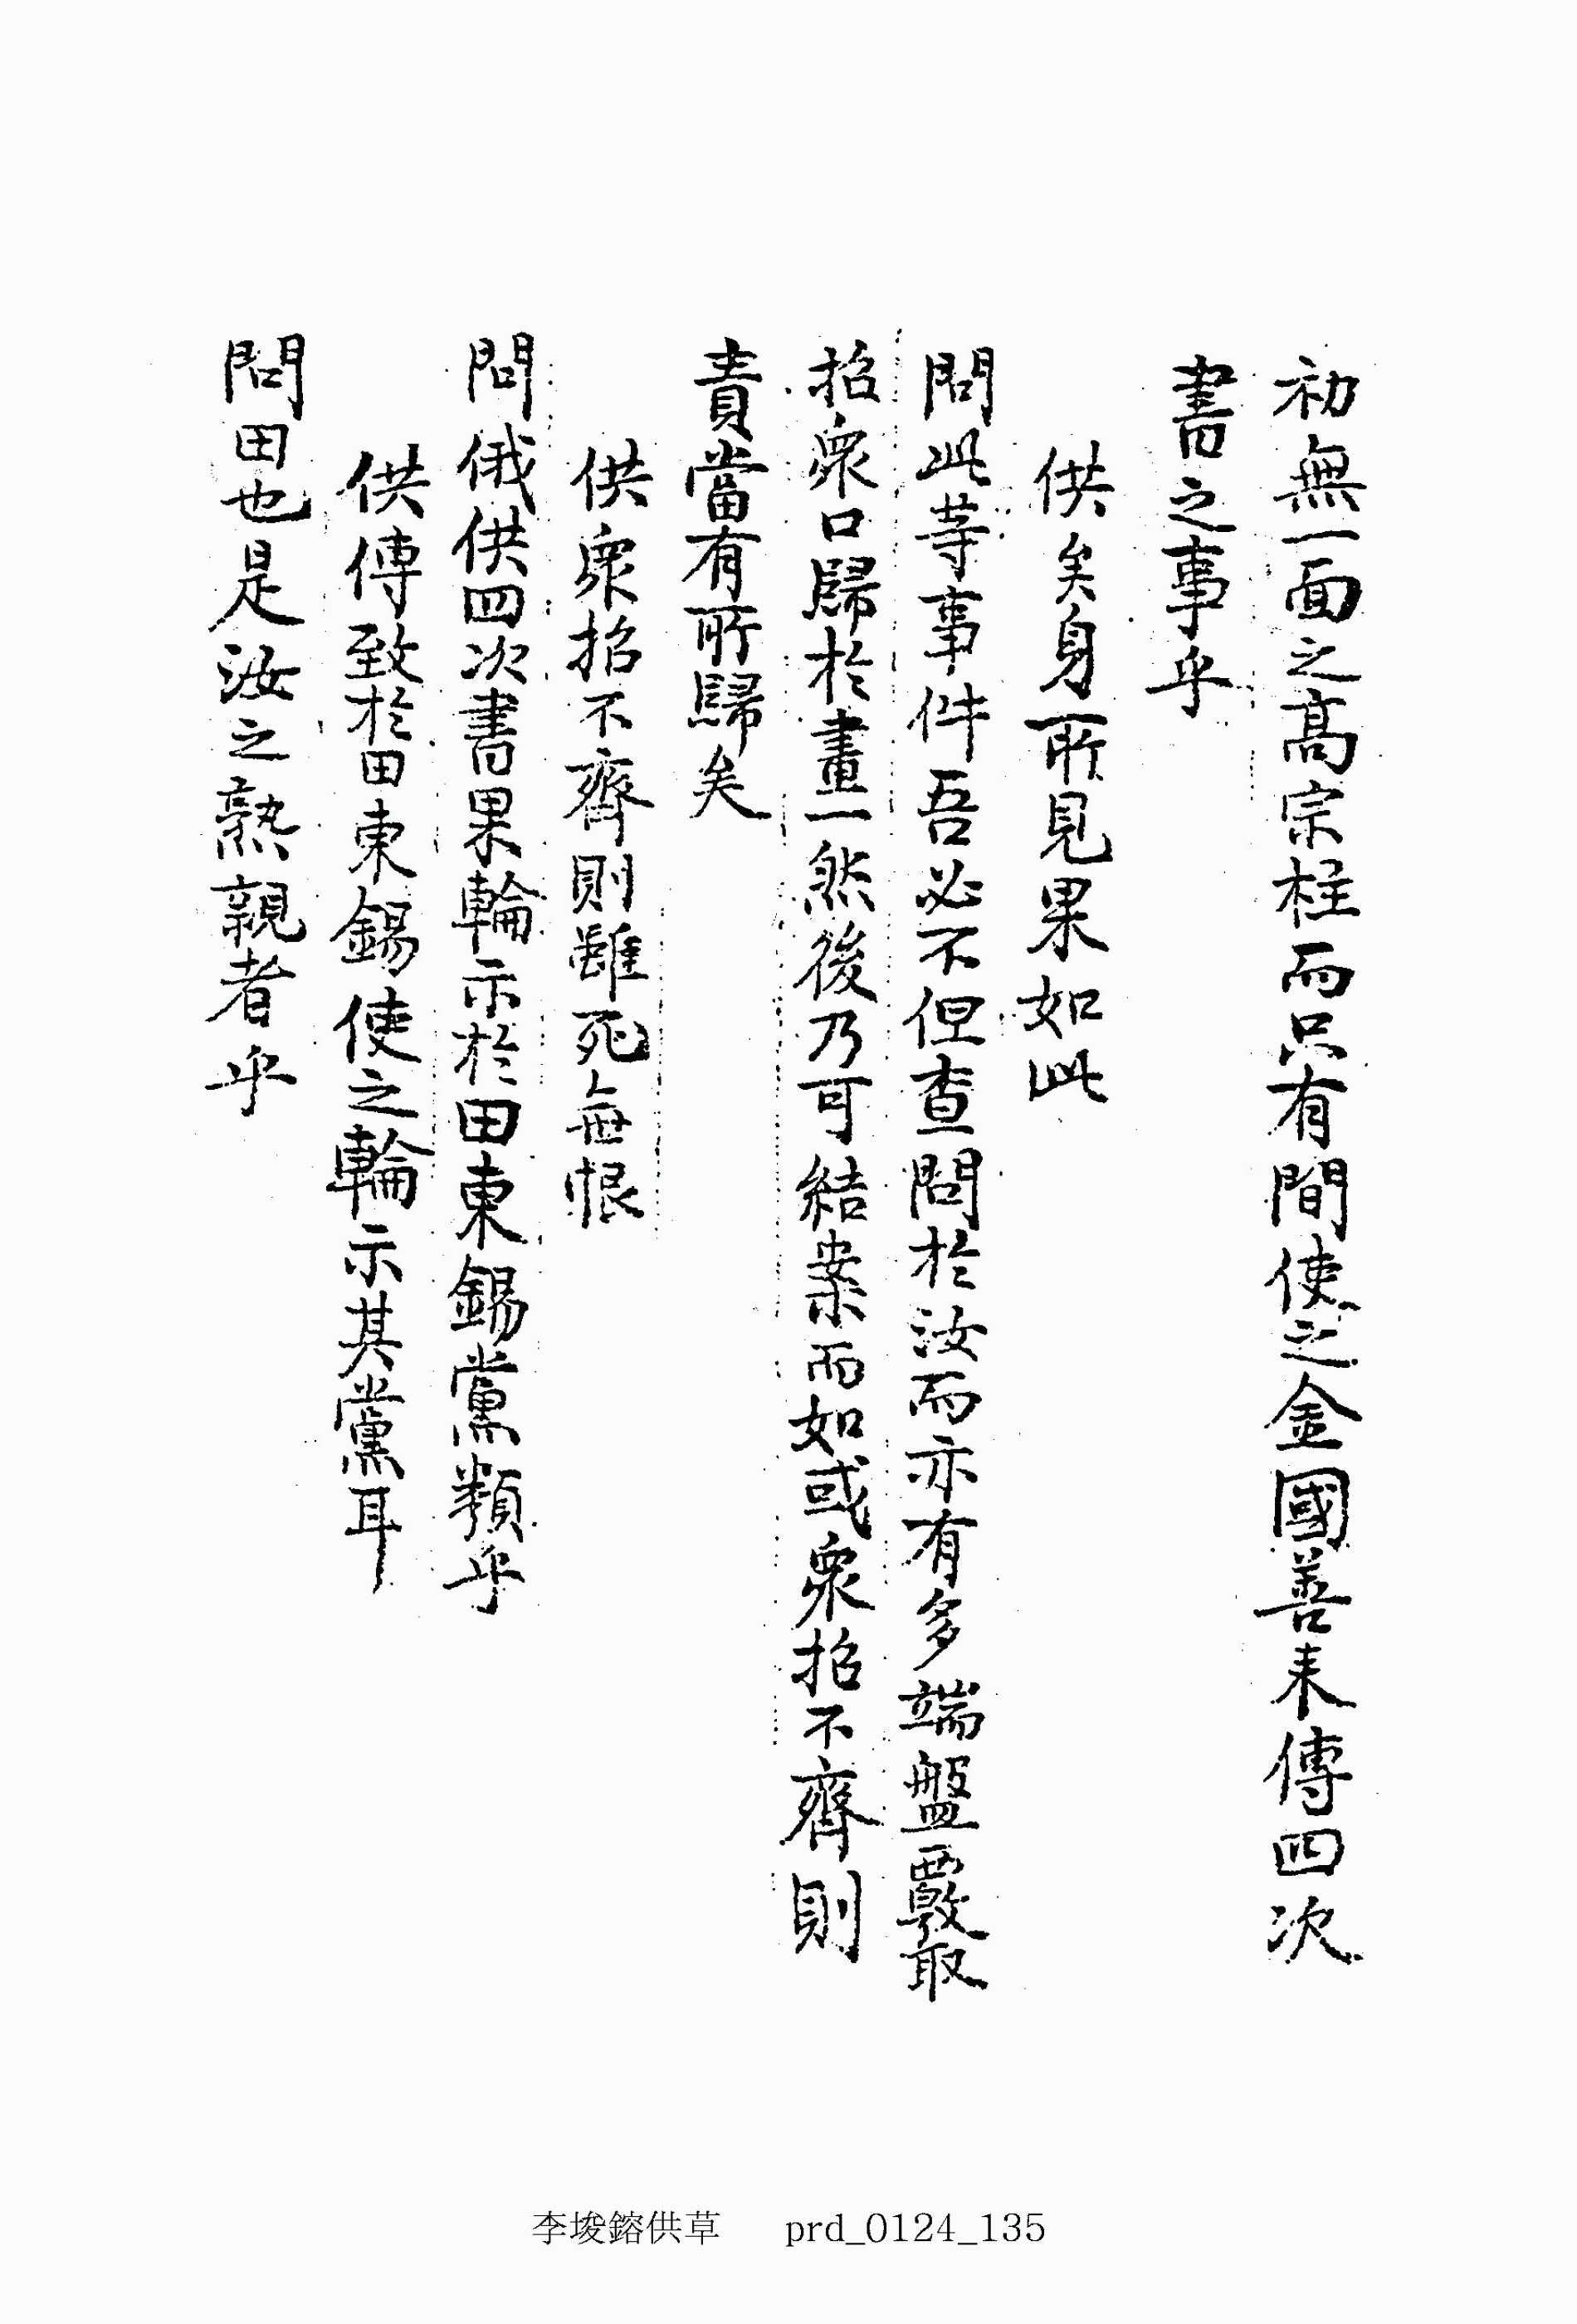 初無一面之高宗柱而只有間使之金國善来傳四次
書之事乎
供矣身所見果如此
問此等事件吾必不但査問於汝而亦有多端盤覈取
招衆口歸於畫一然後乃可結案而如或衆招不齊則
責當有所歸矣
供衆招不齊則雖死無恨
問俄供四次書果輪示於田東錫黨類乎
供傳致於田東錫使之輪示其黨耳
問田也是汝之熟親者乎
李埈鎔供草 prd_0124_135